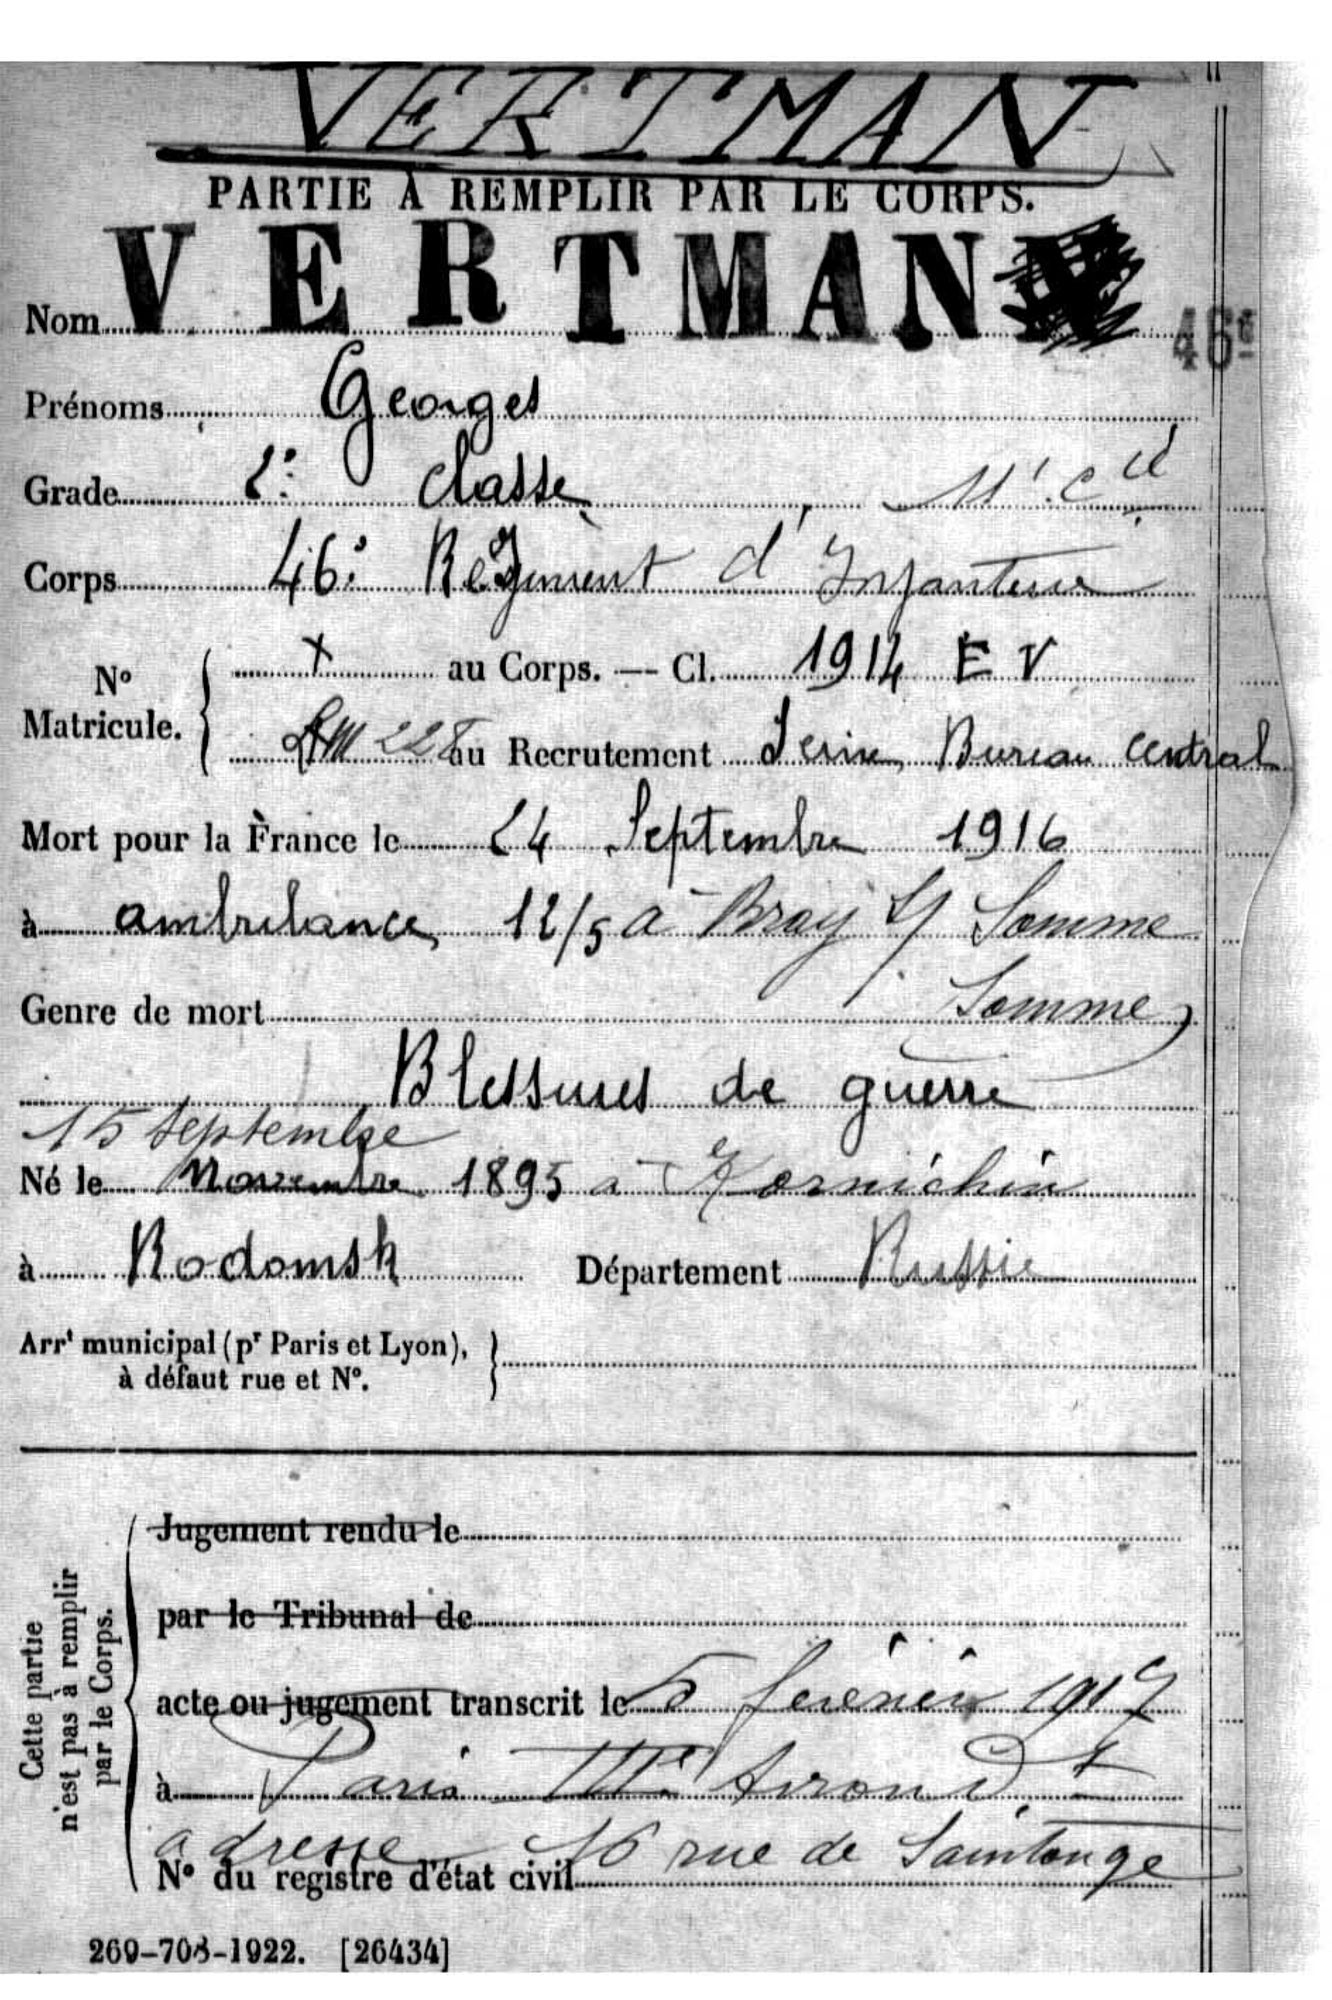 VERTMAN
PARTIE À REMPLIR PAR LE CORPS.
Nom VERTMAN
46e
Prénoms Georges
Grade 2e classe 11e Cie
Corps 46e Régiment d'Infanterie
No Matricule. X au Corps. — Cl. 1914 E V
LM 228 au Recrutement Seine Bureau central
Mort pour la France le 24 Septembre 1916
à ambulance 12/5 à Bray s/ Somme
Genre de mort Somme
Blessures de guerre
15 Septembre
Né le Novembre 1895 à
à Rodomsk Département Russie
Arrt municipal (pr Paris et Lyon),
à défaut rue et No.
Cette partie
n'est pas à remplir
par le Corps.
Jugement rendu le
par le Tribunal de
acte ou jugement transcrit le 5 février 1917
à Paris IIIe Arrondt
adresse 16 rue de Saintonge
No du registre d'état civil
269-708-1922. [26434]